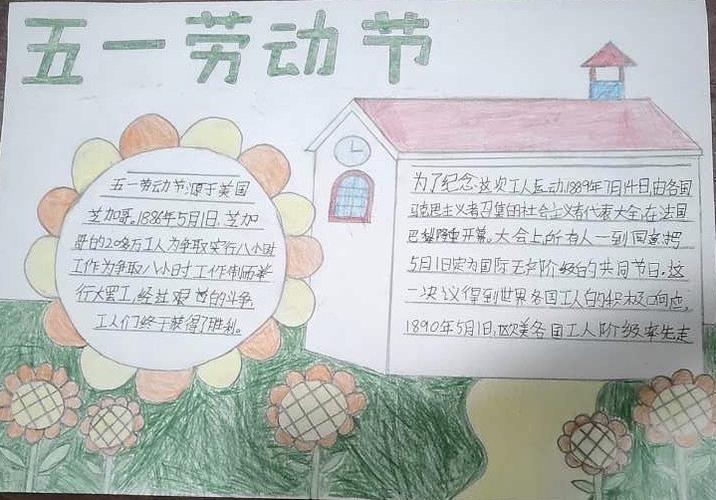 五一劳动节
五一劳动节源于美国
芝加哥。1886年5月1日,芝加
哥的20多万工人为争取实行八小时
工作为争取八小时工作制而举
行大罢工,经过艰苦的斗争,
工人们终于获得了胜利。
为了纪念这次工人运动,1889年7月14日,由各国
马克思主义者召集的社会主义者代表大会,在法国
巴黎隆重开幕。大会上所有人一到同意把
5月1日定为国际无产阶级的共同节日。这
一决议得到世界各国工人的积极响应。
1890年5月1日,欧美各国工人阶级率先走